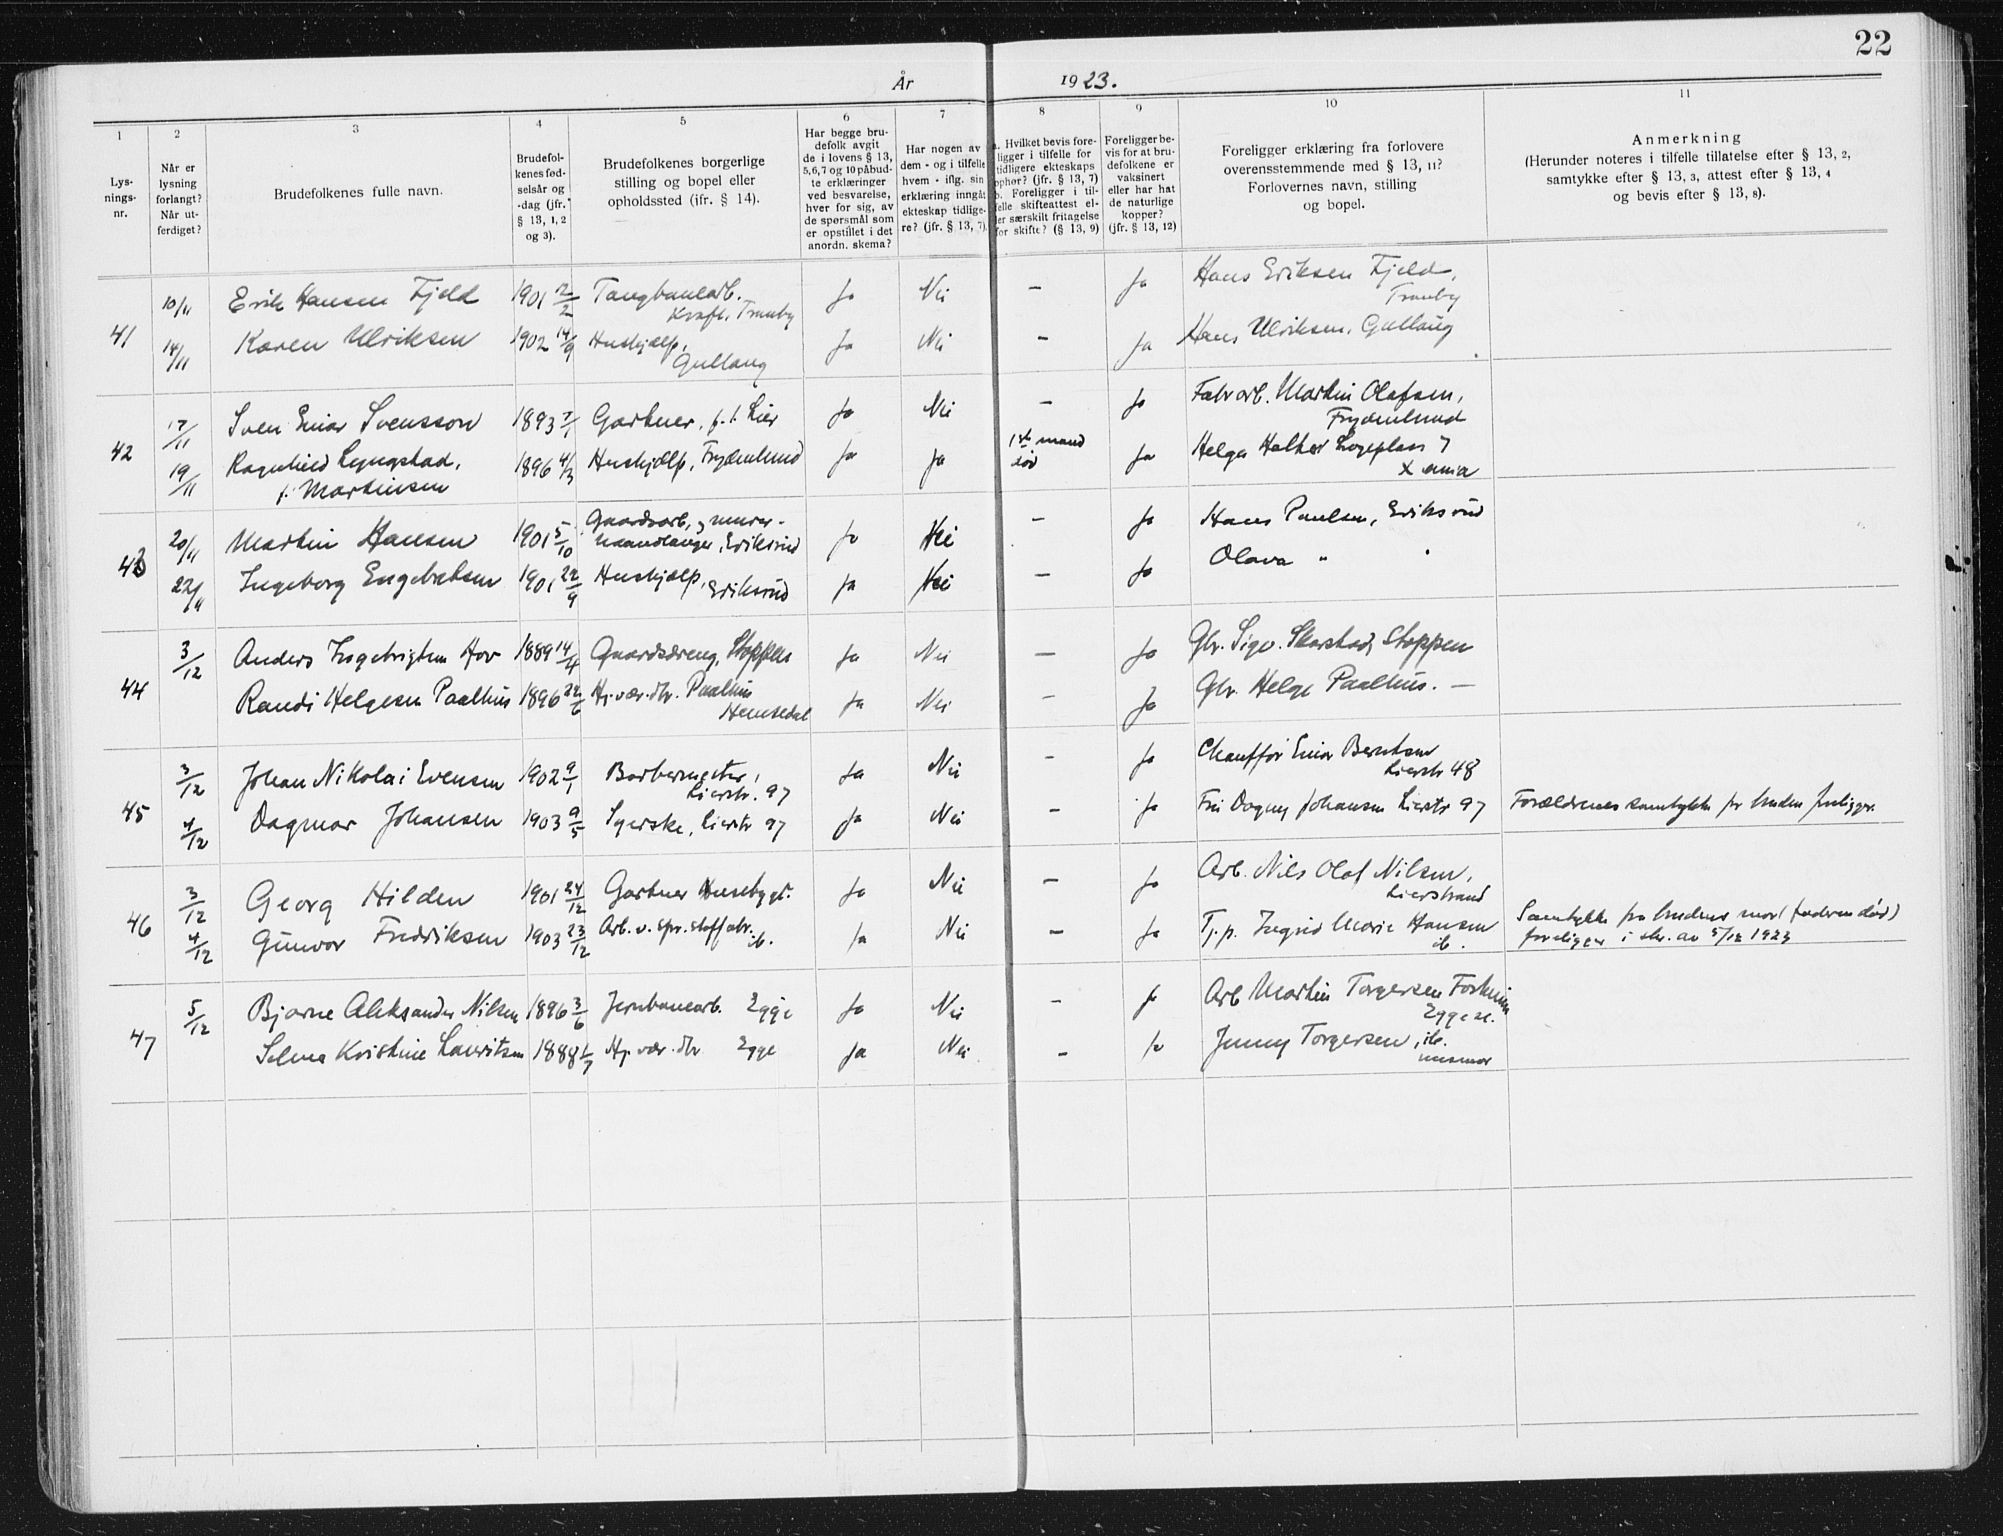 22
År 1923.
1 2 3 4 5 6 7 8 9 10 11
Lysningsnr.
Når er lysning forlangt? Når utferdiget?
Brudefolkenes fulle navn.
Brudefolkenes fødselsår og -dag (jfr. § 13, 1, 2 og 3).
Brudefolkenes borgerlige stilling og bopel eller opholdssted (ifr. § 14).
Har begge brudefolk avgit de i lovens § 13, 5,6,7 og 10 påbudte erklæringer ved besvarelse, hver for sig, av de spørsmål som er opstillet i det anordn. skema?
Har nogen av dem - og i tilfelle hvem - iflg. sin erklæring inngåt ekteskap tidligere? (jfr. § 13, 7).
a. Hvilket bevis foreligger i tilfelle for tidligere ekteskaps ophør? (jfr. § 13, 7) b. Foreligger i tilfelle skifteattest eller særskilt fritagelse for skifte? (§ 13, 9)
Foreligger bevis for at brudefolkene er vaksinert eller har hat de naturlige kopper? (jfr. § 13, 12)
Foreligger erklæring fra forlovere overensstemmende med § 13, 11? Forlovernes navn, stilling og bopel.
Anmerkning (Herunder noteres i tilfelle tillatelse efter § 13, 2, samtykke efter § 13, 3, attest efter § 13, 4 og bevis efter § 13, 8).
41 10/11 Erik Hansen Fjeld 1901 2/2 Taugbanearb. Kraft. Tranby Ja Nei — Ja Hans Eriksen Fjeld, Tranby
14/11 Karen Ulriksen 1902 14/9 Hushjælp, Gullaug Ja Nei — Ja Hans Ulriksen, Gullaug
42 17/11 Sven Einar Svensson 1893 7/1 Gartner, f. t. Lier Ja Nei — Ja Fabr arb. Martin Olafsen, Frydenlund
19/11 Ragnhild Lyngstad, f. Martinsen 1896 4/3 Hushjælp, Frydenlund Ja Ja 1ste mand død Ja Helga Logeplass 7 X ania
43 20/11 Martin Hansen 1901 5/10 Gaardsarb. og murerhaandlanger, Eriksrud Ja Nei — Ja Hans Paulsen, Eriksrud
22/11 Ingeborg Engebretsen 1901 22/9 Hushjælp, Eriksrud Ja Nei — Ja Olava " "
44 3/12 Anders Ingebrigtsen Hov 1889 14/4 Gaardsdreng, Stoppen Ja Nei — Ja Gbr. Sigv. Skarstad, Stoppen
Randi Helgesen Paalhus 1896 22/6 Hj. vær. dtr. Paalhus Hemsedal Ja Nei — Ja Gbr. Helge Paalhus. —
45 3/12 Johan Nikolai Evensen 1902 9/1 Barbermester, Lierstr. 97 Ja Nei — Ja Chauffør Einar Berntsen Lierstr 48
4/12 Dagmar Johansen 1903 9/5 Syerske, Lierstr 97 Ja Nei — Ja Fru Dagny Johansen Lierstr 97 Forældrenes samtykke for bruden foreligger.
46 3/12 Georg Hilden 1901 24/12 Gartner Husebygt. Ja Nei — Ja Arb. Nils Olaf Nilsen, Lierstrand
4/12 Gunvor Fredriksen 1903 23/12 Arb. v. spr. stoffabr. ib. Ja Nei — Ja Tj. p. Ingrid Marie Hansen ib. Samtykke fra brudens mor (faderen død) foreligger i skr. av 5/12 1923
47 5/12 Bjarne Aleksander Nilsen 1896 3/6 Jernbanearb. Egge Ja Nei — Ja Arb Martin Torgersen
Selma Kristine Lauritsen 1888 1/7 Hj. vær. dtr Egge Ja Nei — Ja Jenny Torgersen, ib. husmor